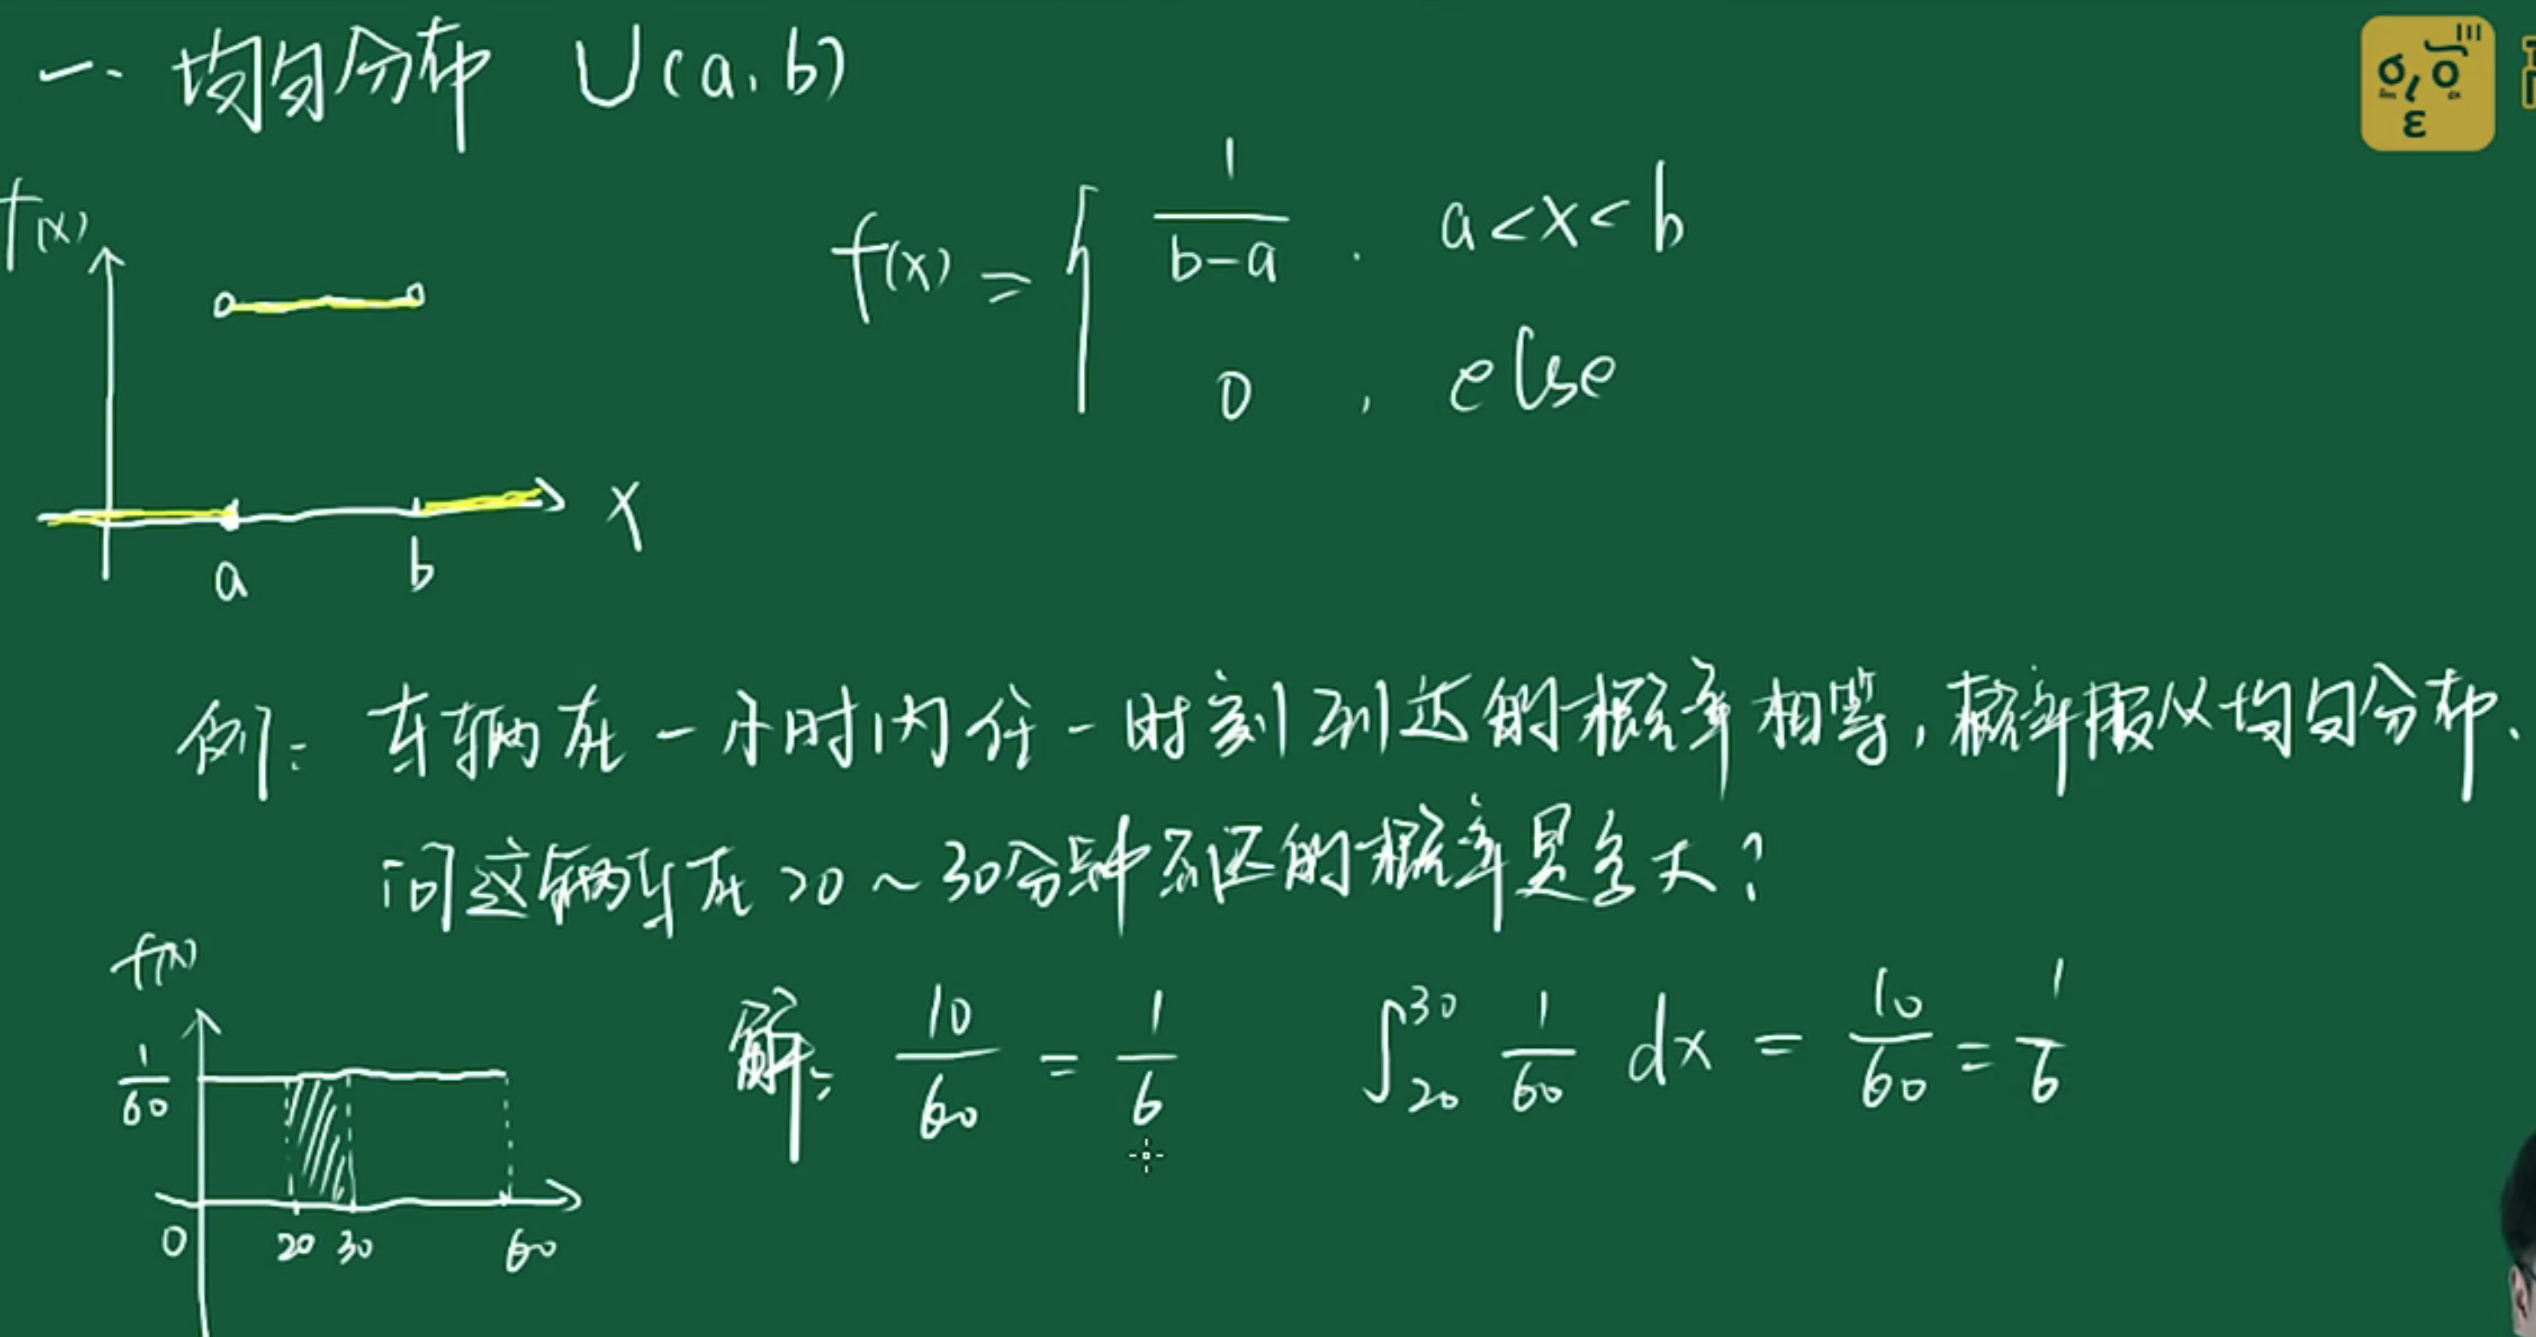 一. 均匀分布 U(a, b)
f(x)
f(x) = { 1/(b-a) , a<x<b
0 , else
x
a b
例: 车辆在一小时内任一时刻到达的概率相等, 概率服从均匀分布、
问这辆车在20~30分钟到达的概率是多大?
f(x)
1/60
解: 10/60 = 1/6 ∫₂₀³⁰ 1/60 dx = 10/60 = 1/6
0 20 30 60